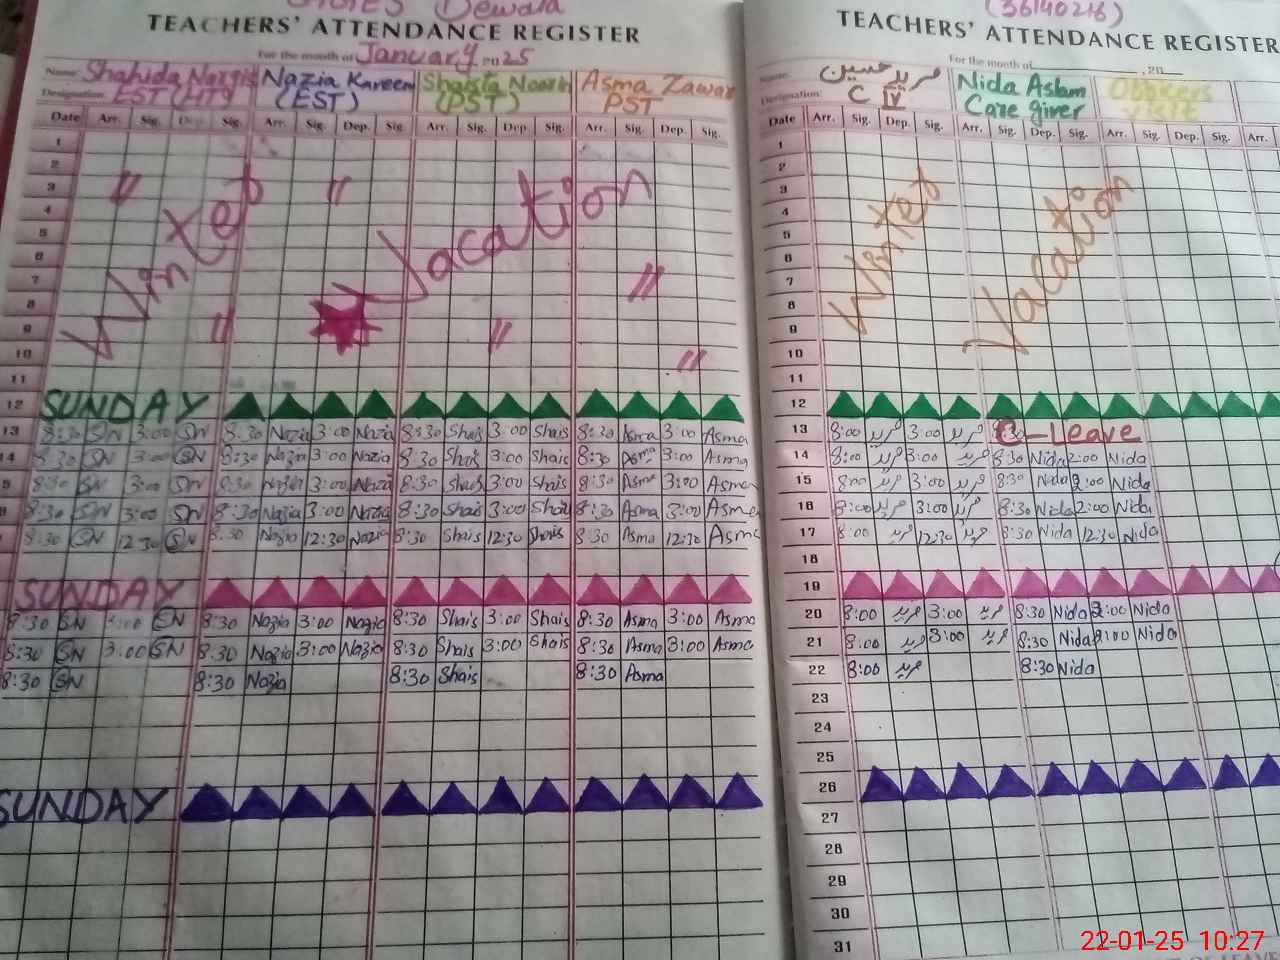 Dewala
TEACHERS' ATTENDANCE REGISTER
For the month of January 2025
Name: Shahida Nargis Nazia Kareem Shaista Noorin Asma Zawar
Designation: EST (HT) (EST) (PST) PST
Date Arr. Sig. Dep. Sig. Arr. Sig. Dep. Sig. Arr. Sig. Dep. Sig. Arr. Sig. Dep. Sig.
1
2
3 " "
4
5
6
7 "
8
9 " "
10 "
11
Winter Vacation
12 SUNDAY
13 8:30 SN 3:00 SN 8:30 Nazia 3:00 Nazia 8:30 Shais 3:00 Shais 8:30 Asma 3:00 Asma
14 8:30 SN 3:00 SN 8:30 Nazia 3:00 Nazia 8:30 Shais 3:00 Shais 8:30 Asma 3:00 Asma
8:30 SN 3:00 SN 8:30 Nazia 3:00 Nazia 8:30 Shais 3:00 Shais 8:30 Asma 3:00 Asma
8:30 SN 3:00 SN 8:30 Nazia 3:00 Nazia 8:30 Shais 3:00 Shais 8:30 Asma 3:00 Asma
8:30 SN 12:30 SN 8:30 Nazia 12:30 Nazia 8:30 Shais 12:30 Shais 8:30 Asma 12:30 Asma
SUNDAY
8:30 SN 3:00 SN 8:30 Nazia 3:00 Nazia 8:30 Shais 3:00 Shais 8:30 Asma 3:00 Asma
8:30 SN 3:00 SN 8:30 Nazia 3:00 Nazia 8:30 Shais 3:00 Shais 8:30 Asma 3:00 Asma
8:30 SN 8:30 Nazia 8:30 Shais 8:30 Asma
SUNDAY
(36140216)
TEACHERS' ATTENDANCE REGISTER
For the month of , 20
Name: مرید حسین Nida Aslam Officers
Designation: C IV Care giver visit
Date Arr. Sig. Dep. Sig. Arr. Sig. Dep. Sig. Arr. Sig. Dep. Sig. Arr.
1
2
3
4
5
6
7
8
9
10
11
Winter Vacation
12
13 8:00 مرید 3:00 مرید Leave
14 8:00 مرید 3:00 مرید 8:30 Nida 2:00 Nida
15 8:00 مرید 3:00 مرید 8:30 Nida 2:00 Nida
16 8:00 مرید 3:00 مرید 8:30 Nida 2:00 Nida
17 8:00 مرید 12:30 مرید 8:30 Nida 12:30 Nida
18
19
20 8:00 مرید 3:00 مرید 8:30 Nida 2:00 Nida
21 8:00 مرید 3:00 مرید 8:30 Nida 2:00 Nida
22 8:00 مرید 8:30 Nida
23
24
25
26
27
28
29
30
31
22-01-25 10:27